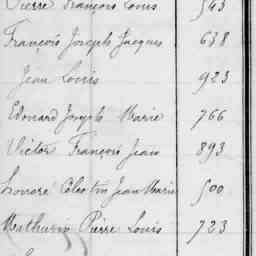 Pierre François Louis 543
François Joseph Jacques 638
Jean Louis 923
Edouard Joseph Marie 766
Victor François Jean 893
Honoré Célestin Jean Marie 500
Mathurin Pierre Louis 723